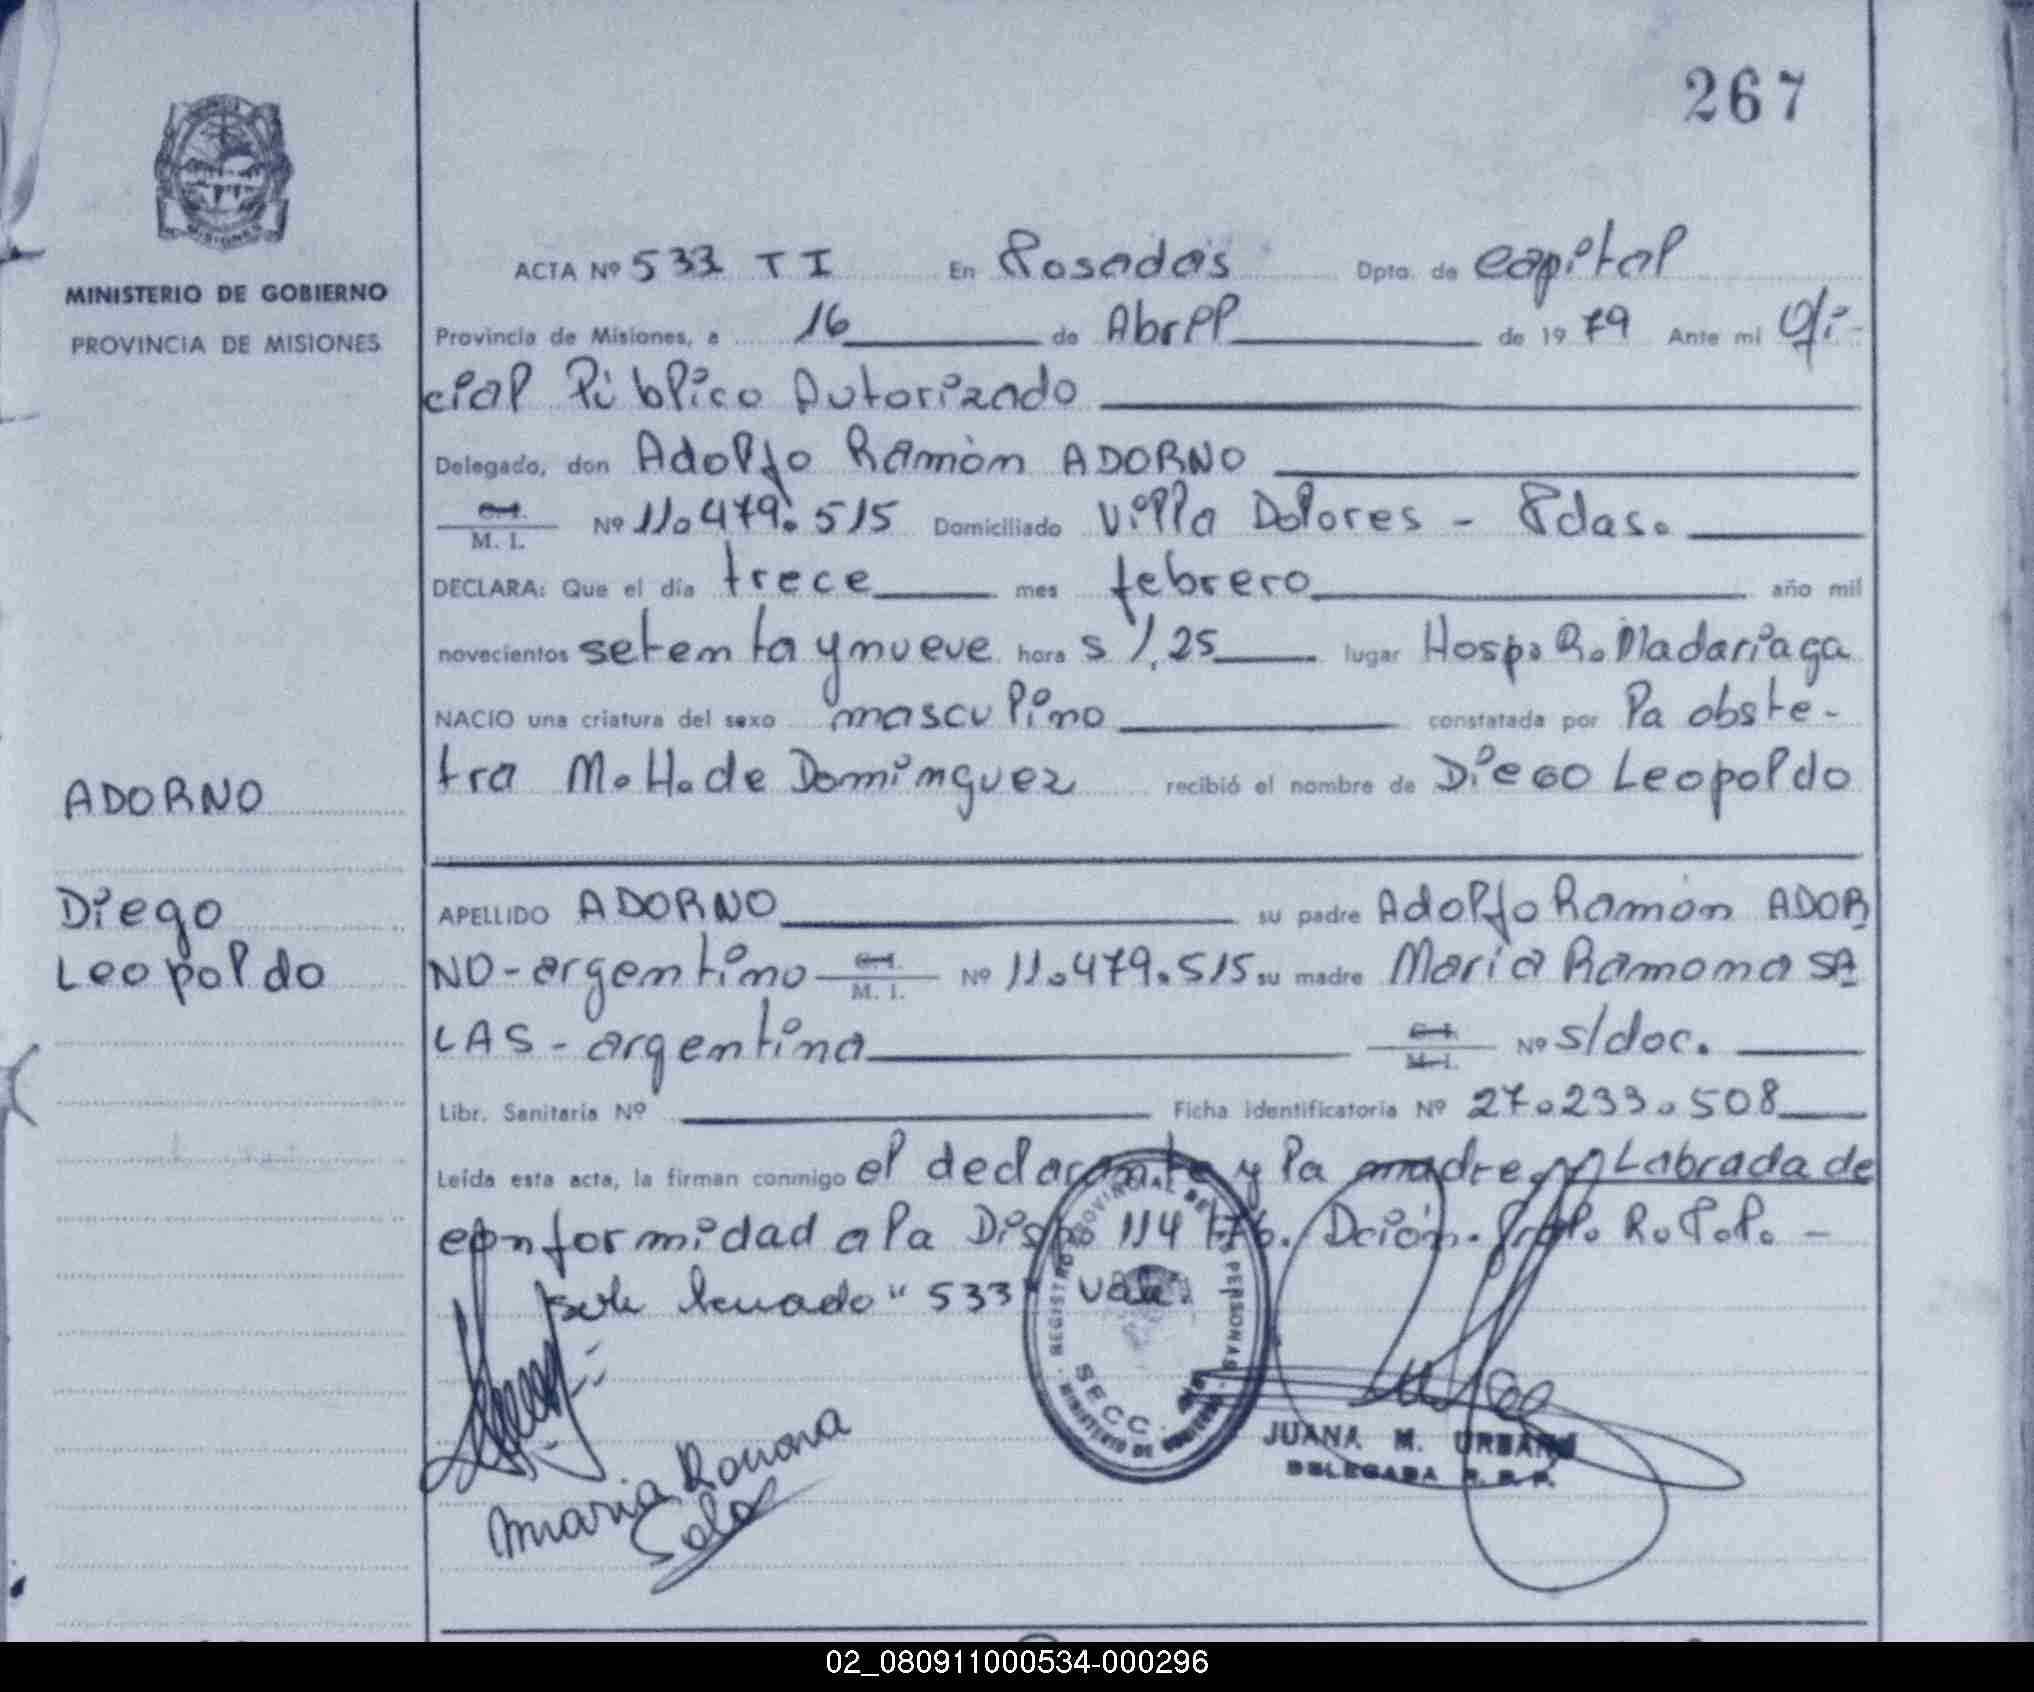 267
MINISTERIO DE GOBIERNO
PROVINCIA DE MISIONES
ACTA Nº 533 T I En Posadas Dpto. de Capital
Provincia de Misiones, a 16 de Abril de 1979 Ante mi Ofi-
cial Público Autorizado
Delegado, don Adolfo Ramón ADORNO
C.I. M. I. Nº 11.479.515 Domiciliado Villa Dolores - Pdas.
DECLARA: Que el día trece mes febrero año mil
novecientos setenta y nueve hora s 1,25 lugar Hosp. R. Madariaga
NACIO una criatura del sexo masculino constatada por la obste-
tra M. H. de Dominguez recibió el nombre de Diego Leopoldo
ADORNO
Diego
Leopoldo
APELLIDO ADORNO su padre Adolfo Ramón ADOR
NO - argentino C.I. M. I. Nº 11.479.515 su madre María Ramona SA
LAS - argentina C.I. M.I. Nº s/doc.
Libr. Sanitaria Nº Ficha identificatoria Nº 27.233.508
Leída esta acta, la firman conmigo el declarante y la madre. Labrada de
conformidad a la Disp. 114/76. Dción. Gral. R.P.P. -
"533" vale.
REGISTRO PROVINCIAL DE PERSONAS
SECC.
MINISTERIO DE GOBIERNO
Maria Ramona
Salas
JUANA M. URBAN
DELEGADA R. P. P.
02_080911000534-000296